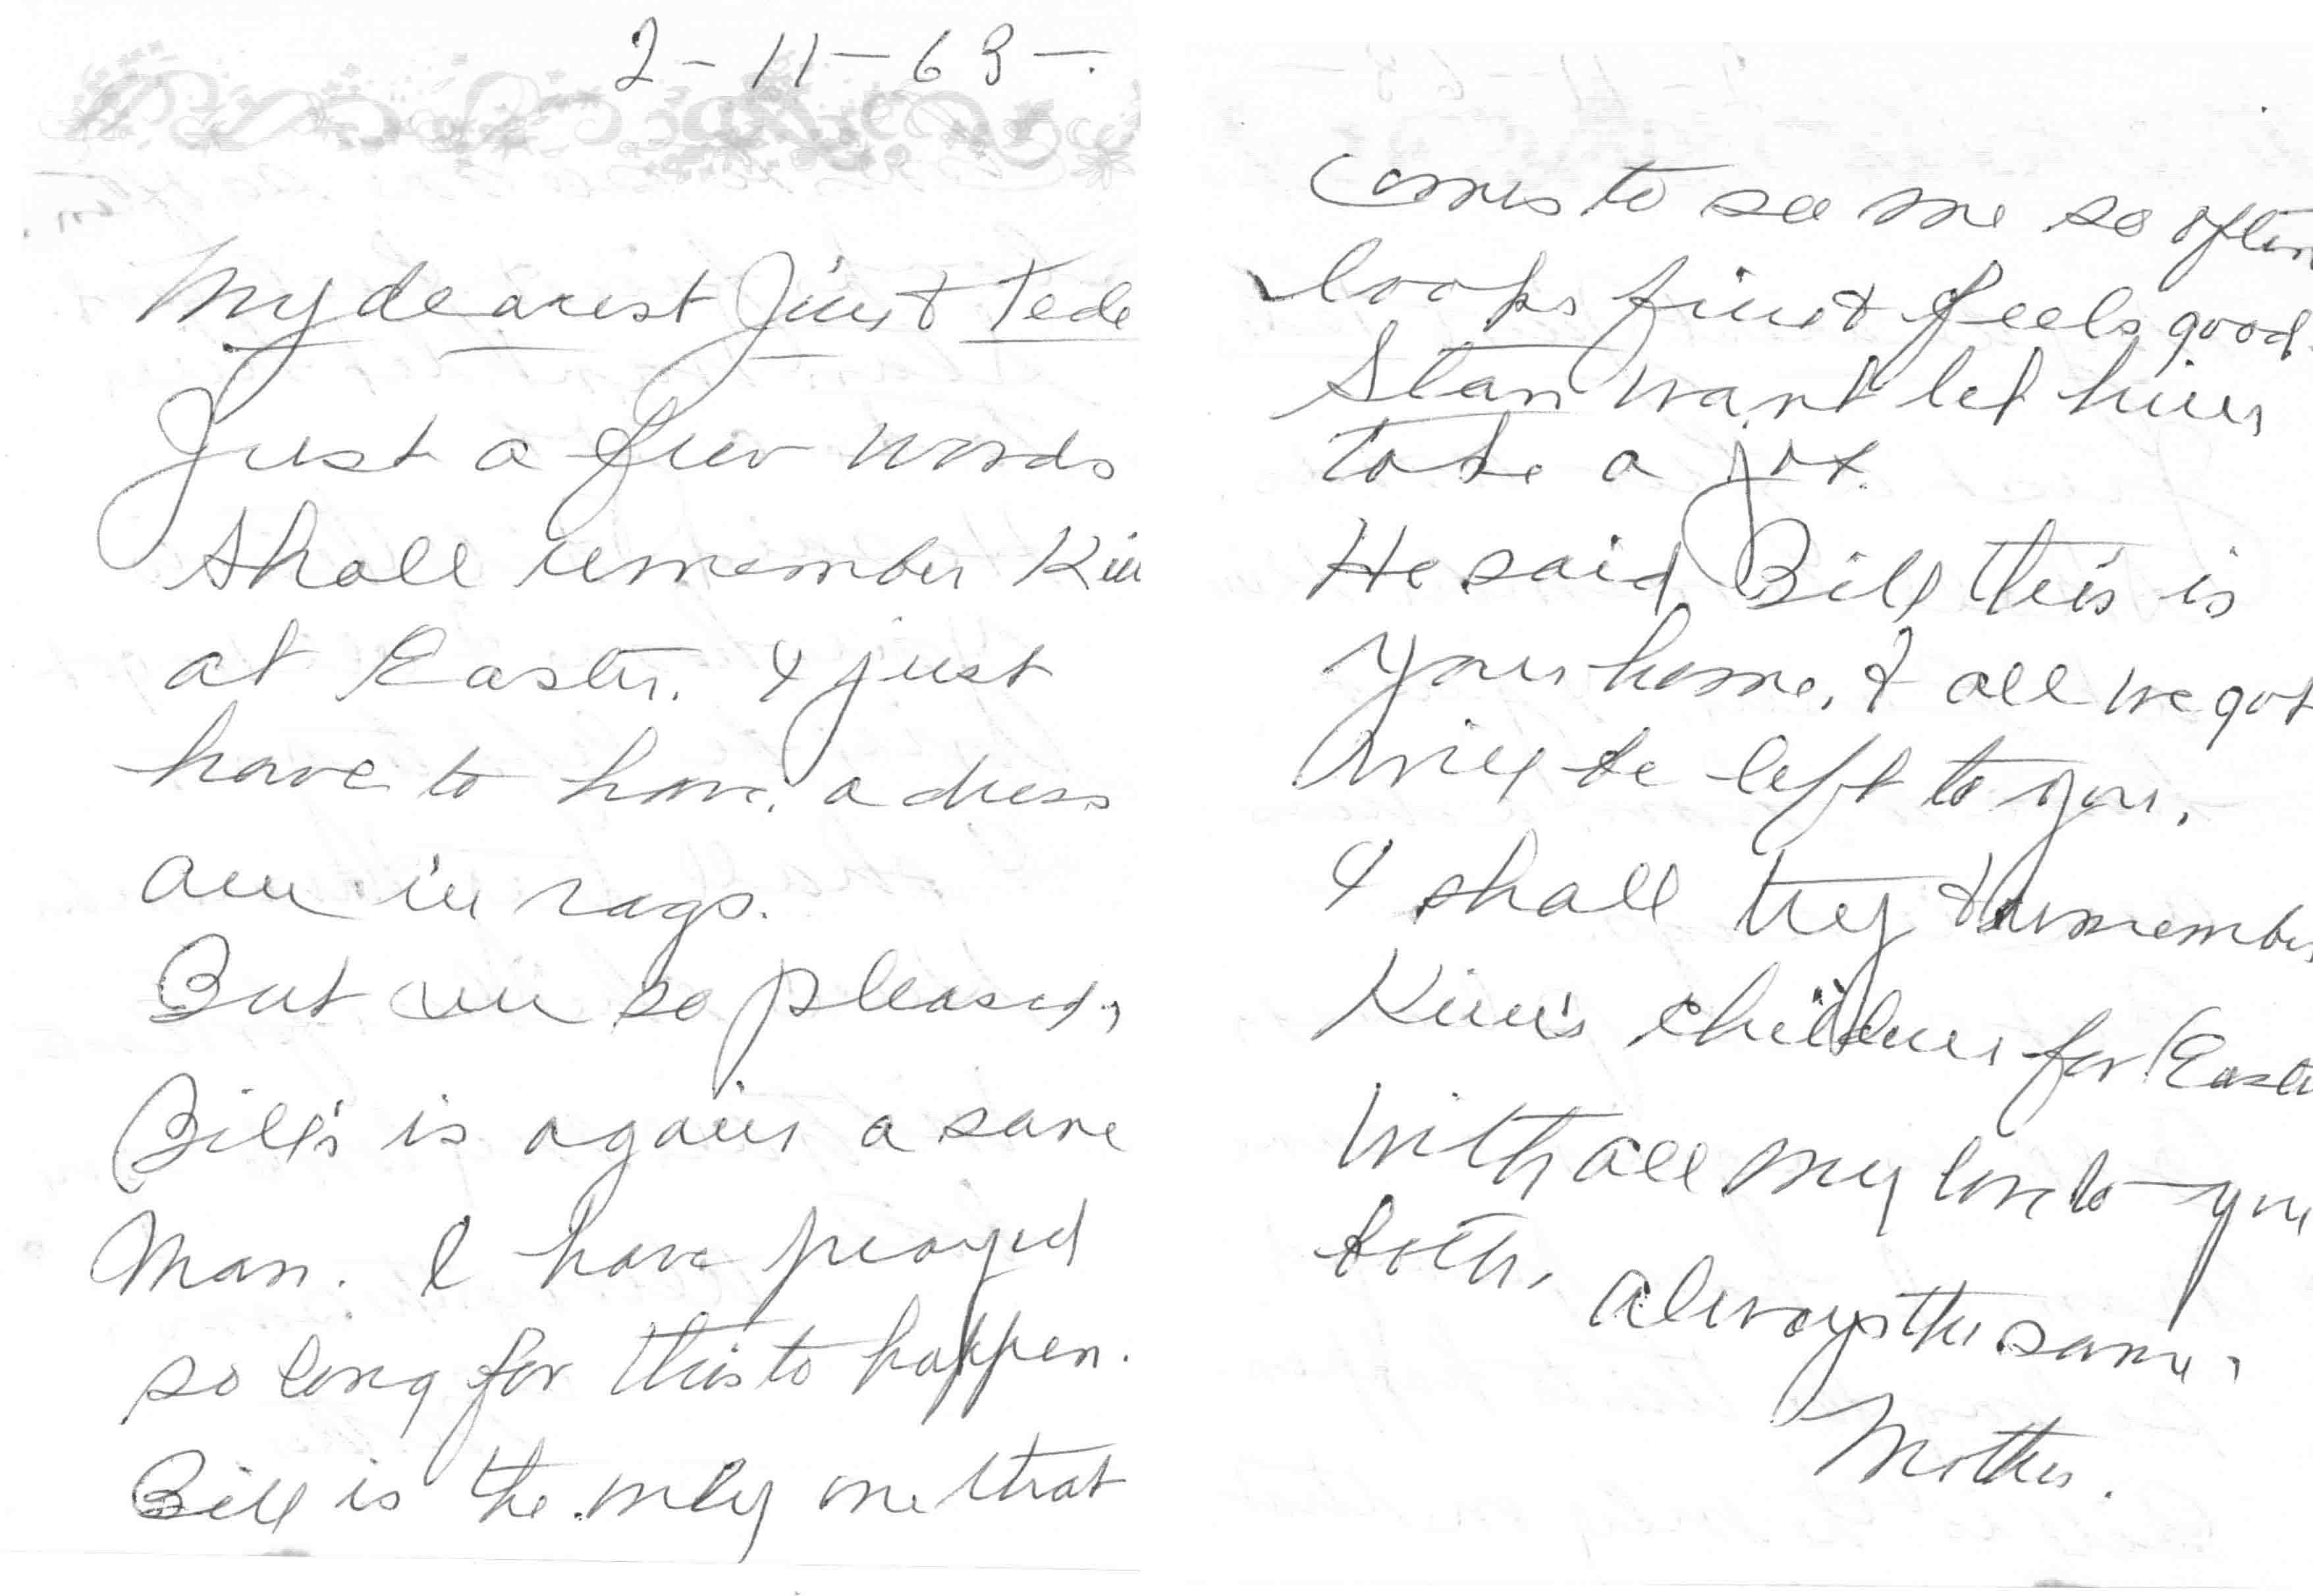 2-11-68-.
My dearest Jim & Tede
Just a few words
Shall remember Kim
at Easter. I just
have to have a dress
am in rags.
But am so pleased,
Bill's is again a sane
Man. I have prayed
so long for this to happen.
Bill is the only one that
Comes to see me so often
looks fine & feels good.
Stan want let him
take a job.
He said Bill this is
your home, & all we got
will be left to you.
I shall try & remember
Kim's children for Easter
With all my love to you
both, always the same,
Mother.